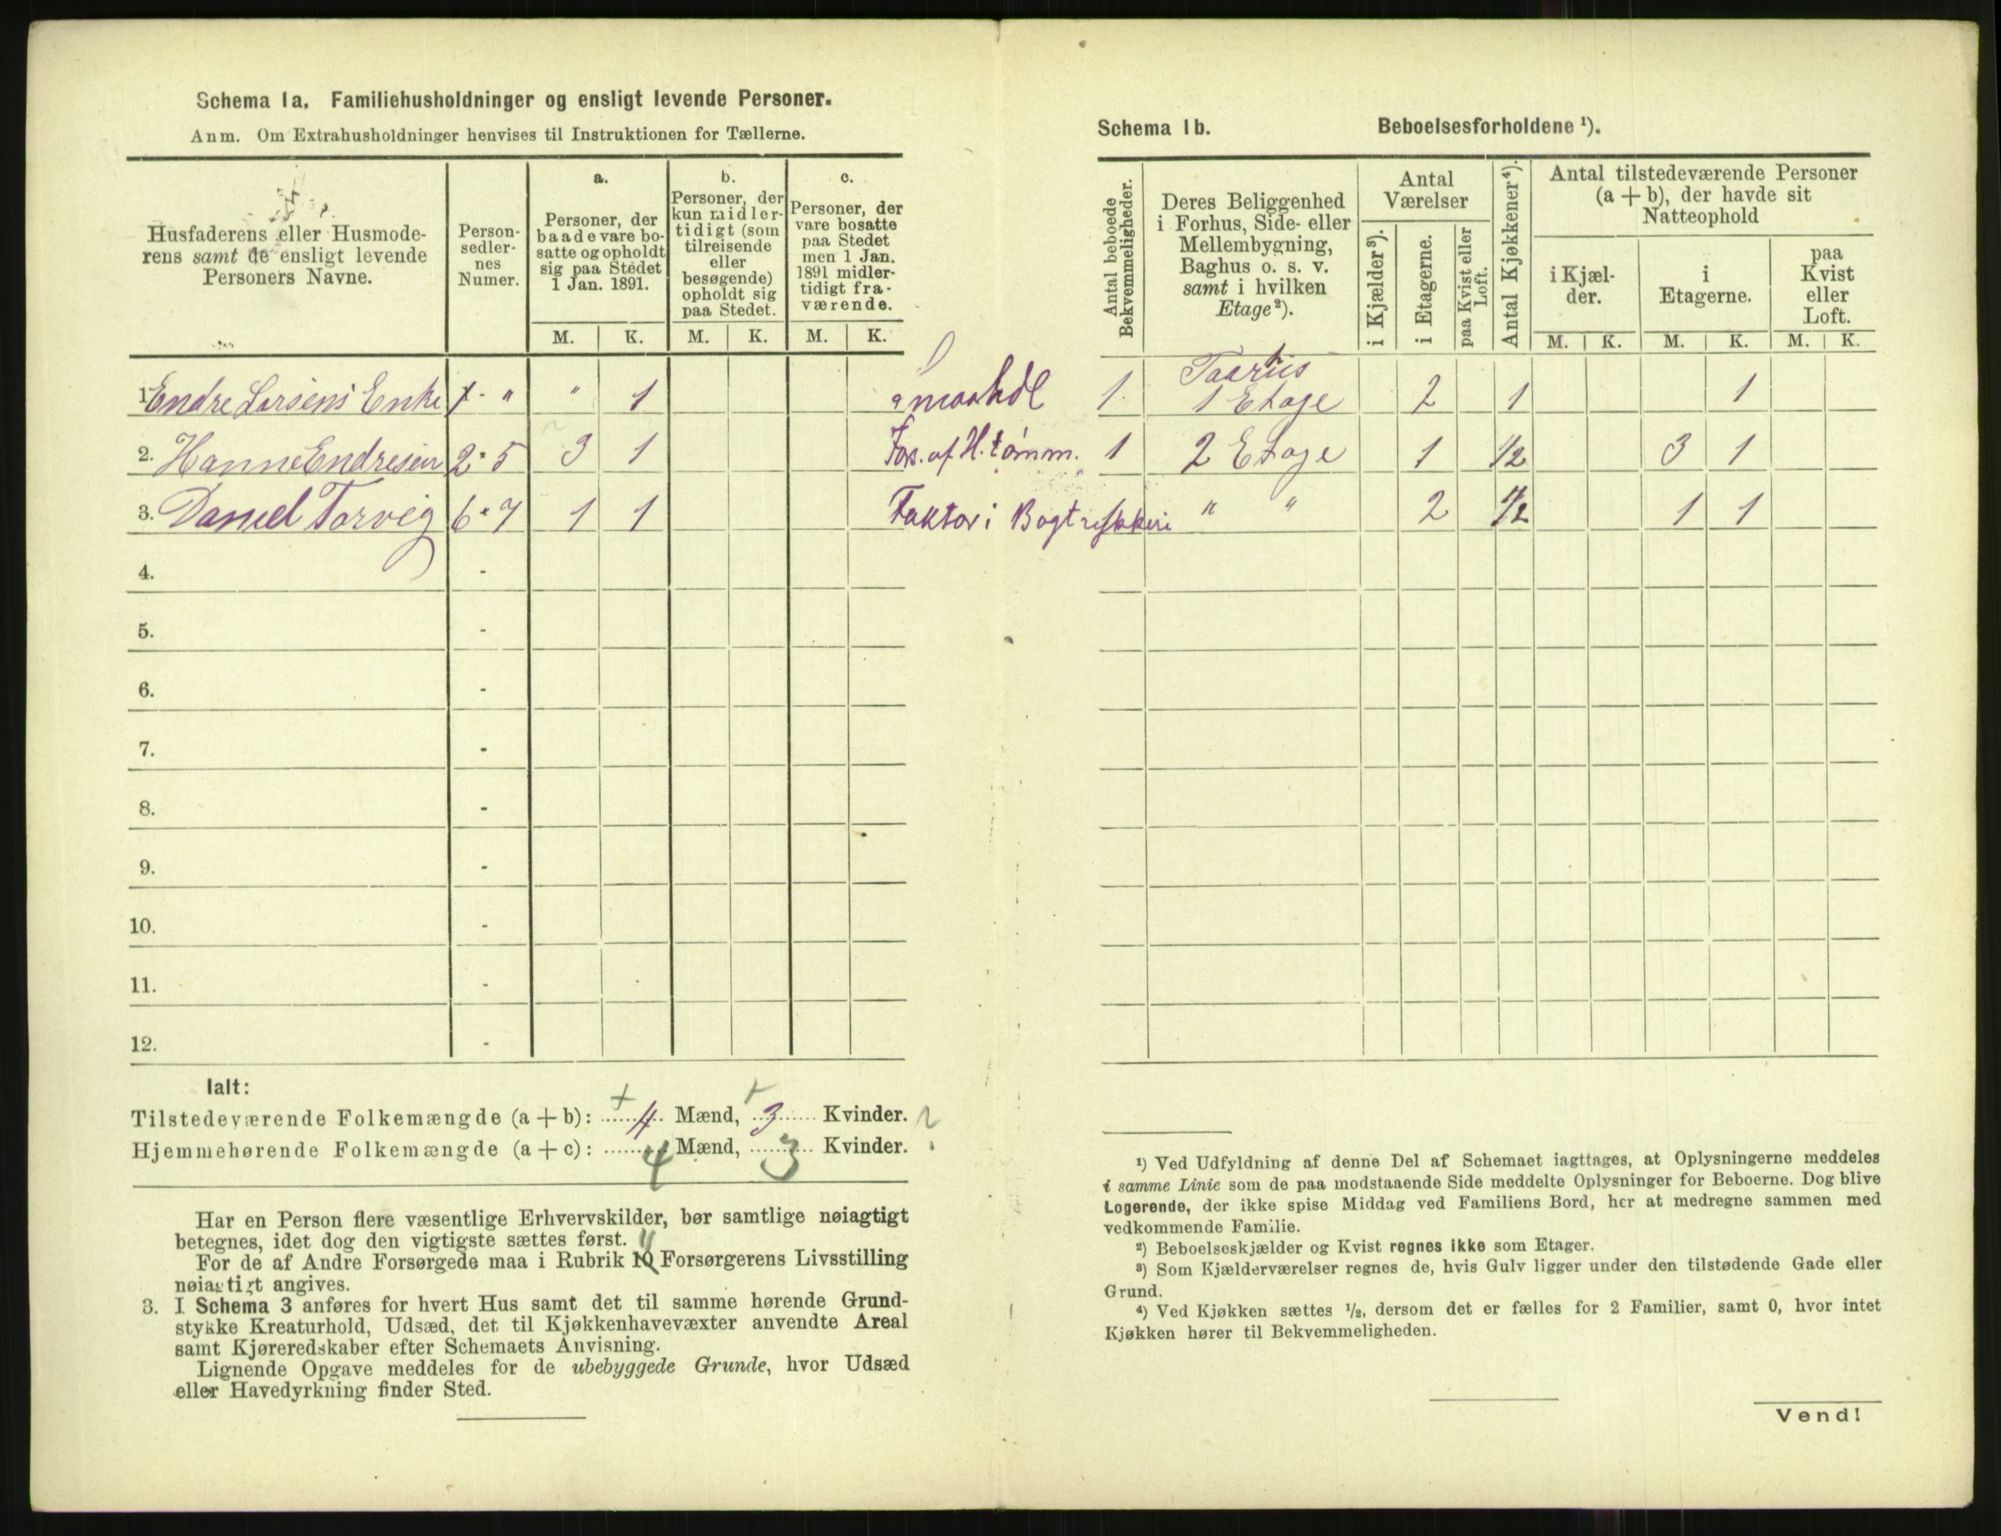 Schema 1a. Familiehusholdninger og ensligt levende Personer.
Anm. Om Extrahusholdninger henvises til Instruktionen for Tællerne.
Husfaderens eller Husmode-
rens samt de ensligt levende
Personers Navne.
Person-
sedler-
nes
Numer.
a.
Personer, der
baade vare bo-
satte og opholdt
sig paa Stedet
1 Jan. 1891.
b.
Personer, der
kun midler-
tidigt (som
tilreisende
eller
besøgende)
opholdt sig
paa Stedet.
c.
Personer, der
vare bosatte
paa Stedet
men 1 Jan.
1891 midler-
tidigt fra-
værende.
M. K. M. K. M. K.
1. Endre Larsens Enke 1 - " " 1 Smaahdl
2. Hanne Endresen 2 - 5 3 1 Fors. af H. tømm.
3. Daniel Torvig 6 - 7 1 1 Faktor i Bogtrykkeri
4. -
5. -
6. -
7. -
8. -
9. -
10. -
11. -
12. -
Ialt:
Tilstedeværende Folkemængde (a + b): 4 Mænd, 3 Kvinder.
Hjemmehørende Folkemængde (a + c): 4 Mænd, 3 Kvinder.
Har en Person flere væsentlige Erhvervskilder, bør samtlige nøiagtigt
betegnes, idet dog den vigtigste sættes først.
For de af Andre Forsørgede maa i Rubrik 10 Forsørgerens Livsstilling
nøiagtigt angives.
3. I Schema 3 anføres for hvert Hus samt det til samme hørende Grund-
stykke Kreaturhold, Udsæd, det til Kjøkkenhavevæxter anvendte Areal
samt Kjøreredskaber efter Schemaets Anvisning.
Lignende Opgave meddeles for de ubebyggede Grunde, hvor Udsæd
eller Havedyrkning finder Sted.
Schema 1b. Beboelsesforholdene ¹).
Antal beboede
Bekvemmeligheder.
Deres Beliggenhed
i Forhus, Side- eller
Mellembygning,
Baghus o. s. v.
samt i hvilken
Etage²).
Antal
Værelser
i Kjælder³).
i Etagerne.
paa Kvist eller
Loft.
Antal Kjøkkener⁴).
Antal tilstedeværende Personer
(a + b), der havde sit
Natteophold
i Kjæl-
der.
i
Etagerne.
paa
Kvist
eller
Loft.
M. K. M. K. M. K.
1. 1 Etage 2 1 1
1 2 Etage 1 1/2 3 1
" " 2 1/2 1 1
¹) Ved Udfyldning af denne Del af Schemaet iagttages, at Oplysningerne meddeles
i samme Linie som de paa modstaaende Side meddelte Oplysninger for Beboerne. Dog blive
Logerende, der ikke spise Middag ved Familiens Bord, her at medregne sammen med
vedkommende Familie.
²) Beboelseskjælder og Kvist regnes ikke som Etager.
³) Som Kjælderværelser regnes de, hvis Gulv ligger under den tilstødende Gade eller
Grund.
⁴) Ved Kjøkken sættes ½, dersom det er fælles for 2 Familier, samt 0, hvor intet
Kjøkken hører til Bekvemmeligheden.
Vend!